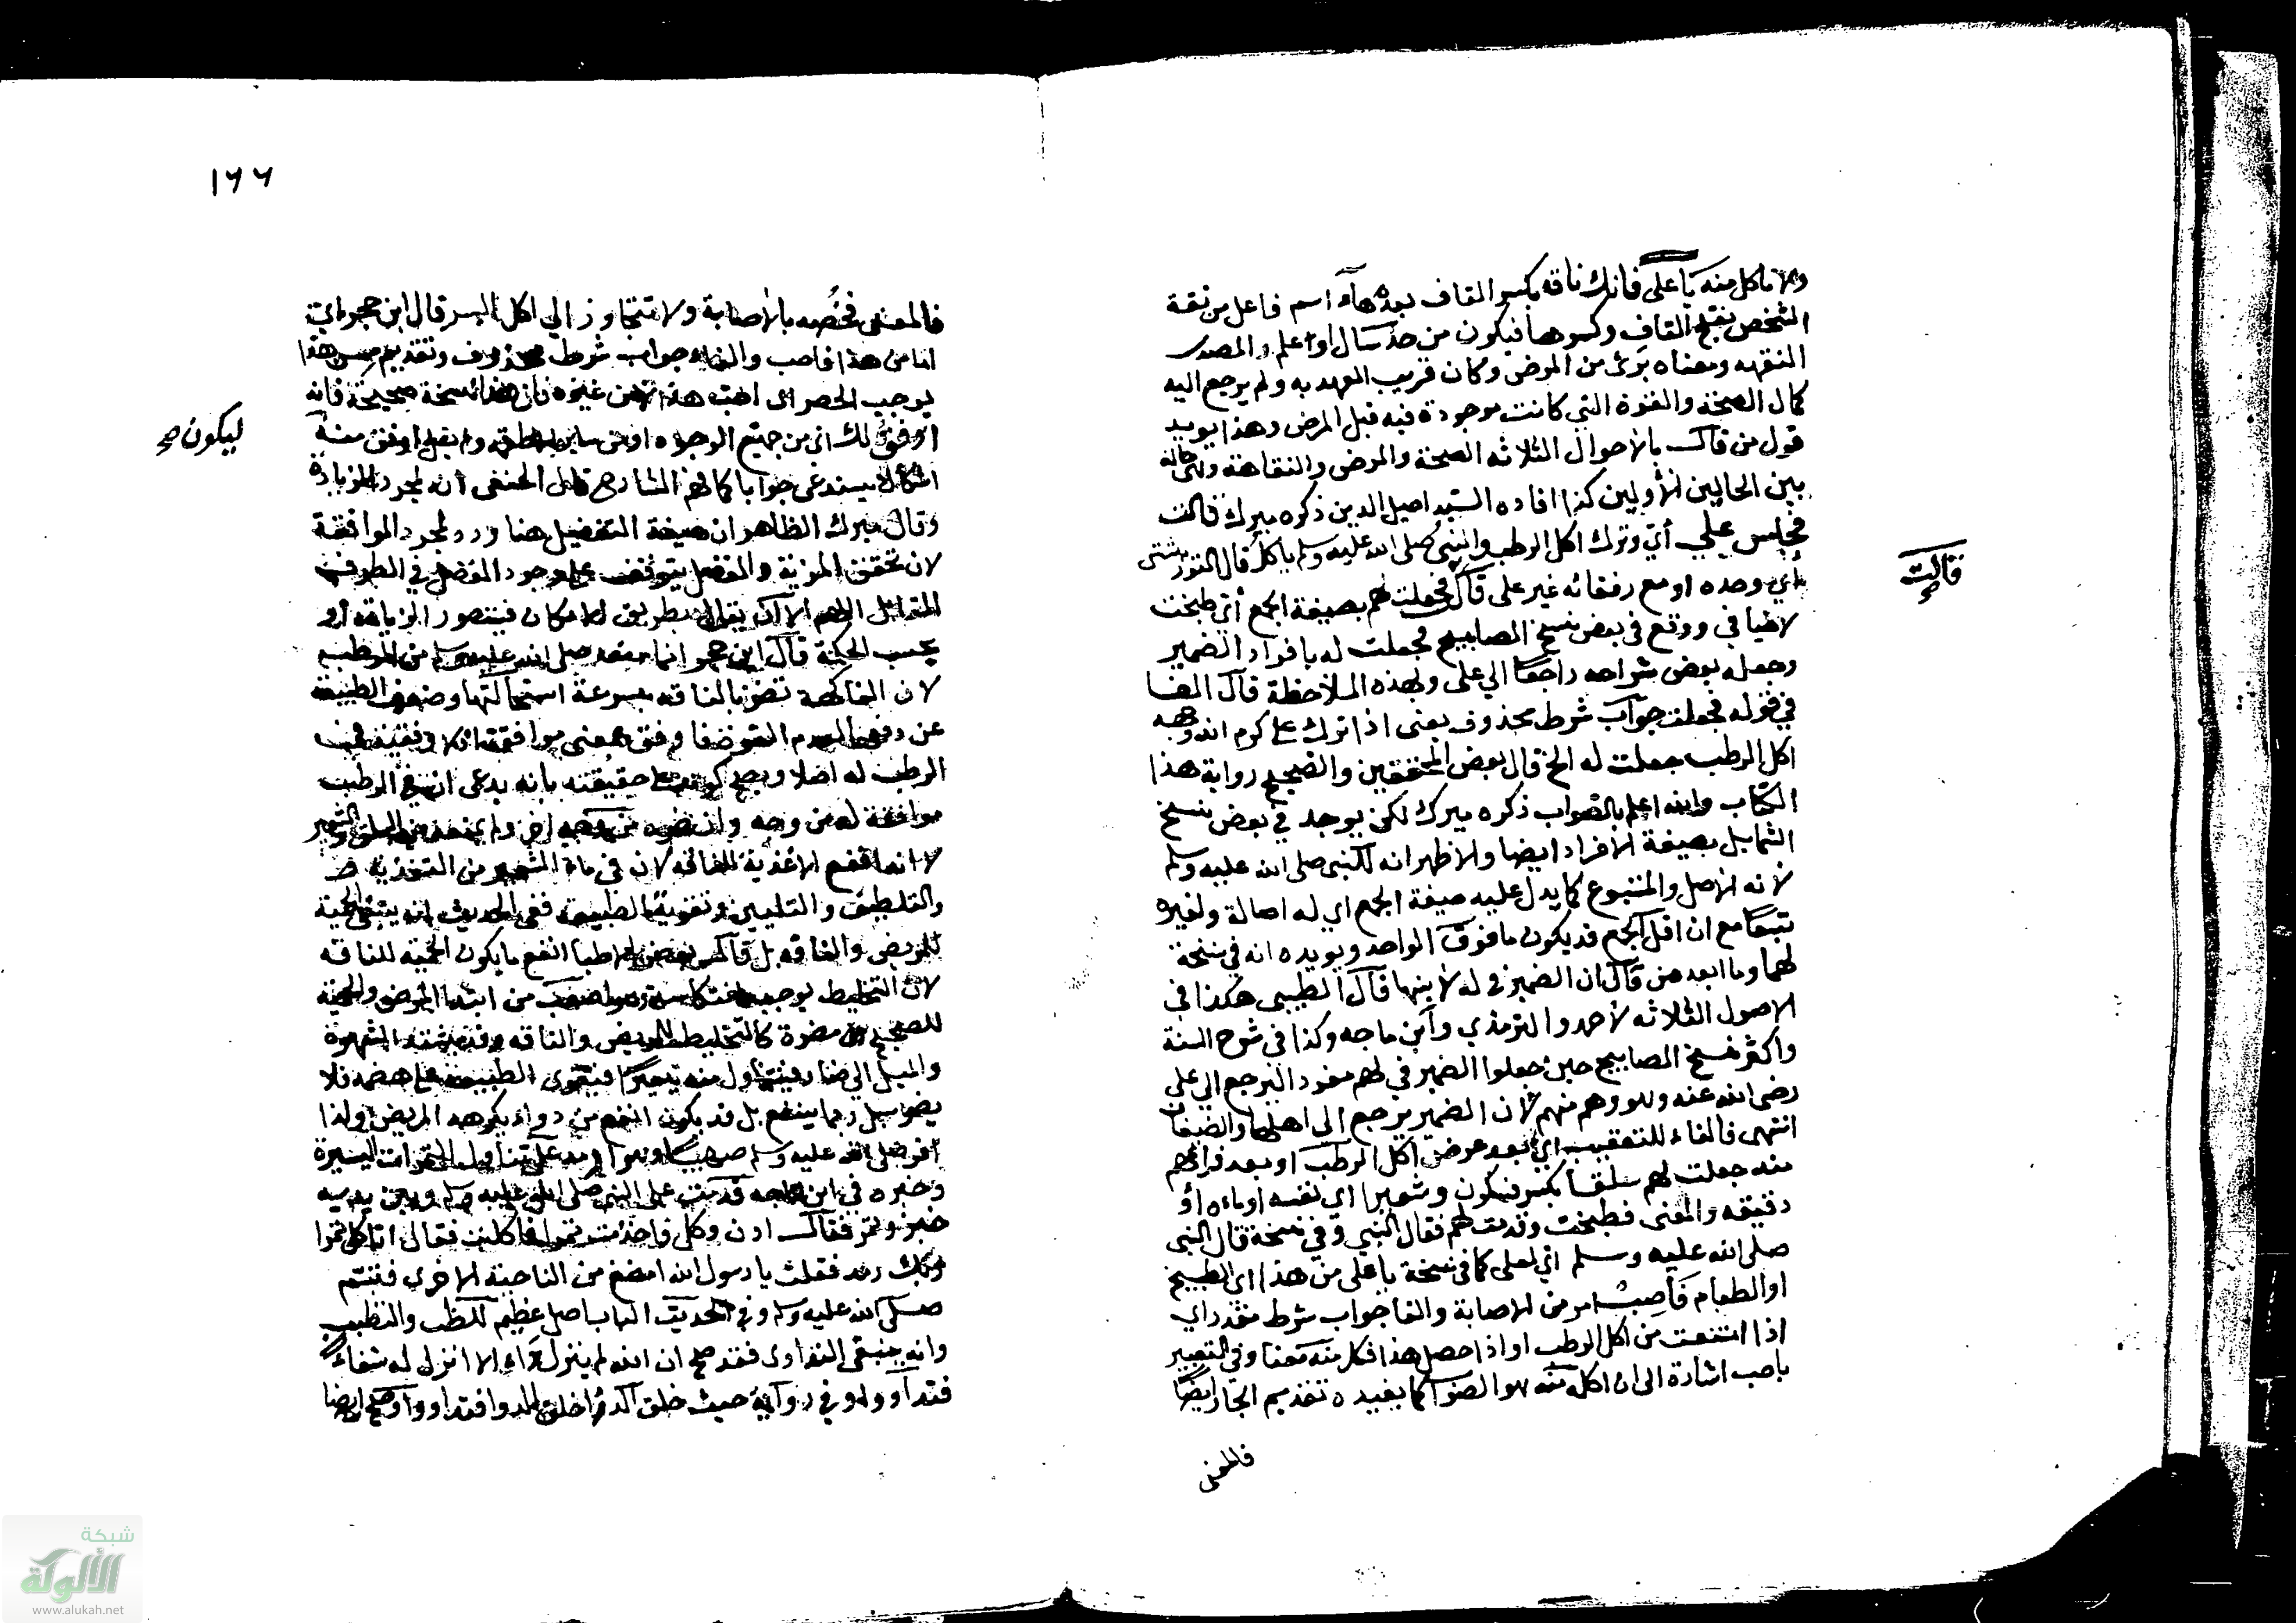 ولا تاكل منه يا علي فانك ناقه بكسر القاف بعده هاء اسم فاعل من نقه
الشخص بفتح القاف وكسرها فيكون من حد سال او علم والمصدر
النقهه ومعناه برئ من المرض وكان قريب العهد به ولم يرجع اليه
كمال الصحة والقوة التي كانت موجودة فيه قبل المرض وهذا يويد
قول من قال بالاحوال الثلاثه الصحة والمرض والنقاهة وهي حالة
بين الحالين الاولين كذا افاده السيد اصيل الدين ذكره ميرك قالت
فجلس علي أي وترك اكل الرطب والنبي صلى الله عليه وسلم ياكل قال التوربشتي
أي وحده او مع رفقائه غير علي قال فجعلت لهم بصيغة الجمع أي طبخت
لاضيافي ووقع في بعض نسخ المصابيح فجعلت له بافراد الضمير
وجعله بعض شراحه راجعا الي علي ولهذه الملاحظة قال الفا
في قوله فجعلت جواب شرط محذوف يعنى اذا ترك علي كرم الله وجهه
اكل الرطب جعلت له الخ قال بعض المحققين والصحيح رواية هذا
الكتاب والله اعلم بالصواب ذكره ميرك لكن يوجد في بعض نسخ
الشمايل بصيغة الافراد ايضا والاظهر انه للنبي صلى الله عليه وسلم
لانه الاصل والمتبوع كما يدل عليه صيغة الجمع اي له اصالة ولغيره
تبعا مع ان اقل الجمع قد يكون ما فوق الواحد ويويده انه في نسخة
لهما وما ابعد من قال ان الضمير في له لابنها قال الطيبي هكذا في
الاصول الثلاثه لاحمد والترمذي وابن ماجه وكذا في شرح السنة
واكثر نسخ المصابيح حين جعلوا الضمير في لهم مفردا ليرجع الي علي
رضى الله عنه وهو وهم منهم لان الضمير يرجع الى اهلها والضيفان
انتهى فالفاء للتعقيب اي بعد عرض اكل الرطب او بعد فراغهم
منه جعلت لهم سلقا بكسر فسكون وشعيرا اي نفسه او ماءه او
دقيقه والمعنى فطبخت وقدمت لهم فقال النبي وفي نسخة قال النبي
صلى الله عليه وسلم اي لعلي كما في نسخة يا علي من هذا اي الطبيخ
او الطعام فأصب امر من الاصابة والفا جواب شرط مقدر اي
اذا امتنعت من اكل الرطب او اذا حصل هذا فكل منه معنا وفي التعبير
باصب اشارة الى ان اكله منه هو الصواب كما يفيده تقديم الجار ايضا
فالمعنى
قالت
صح
١٦٦
فالمعنى فخصه بالاصابة ولا تتجاوز الي اكل البسر قال ابن حجر اي
اما من هذا فاصب والفاء جواب شرط محذوف وتقديم من هذا
يوجب الحصر اى اصب هذا لا من غيره فان هذا نسخة صحيحة فانه
اوفق لك اى من جميع الوجوه او من ساير
يستدعى جوابا كما فهم الشارح قال الحنفى أنه لمجرد الزيادة
وقال ميرك الظاهر ان صيغة التفضيل هنا ورد لمجرد الموافقة
لان تحقق المزية والفضل يتوقف على وجود الفضل في الطرف
المقابل اللهم الا أن يقال بطريق الامكان فيتصور الزيادة أو
بحسب الحكمة قال ابن حجر انما منعه صلى الله عليه وسلم من الرطب
لان الفاكهة تضر بالناقه لسرعة استحالتها وضعف الطبيعة
عن دفعها لعدم القوة فاوفق بمعنى موافق اذ لا اوفقية في
الرطب له اصلا ويصح كونه على حقيقته بانه يدعى ان في الرطب
موافقة له من وجه وان ضره من وجه اخر ولم يمنعه من السلق والشعير
لانه انفع الاغذية للناقه لان في ماء الشعير من التغذية
والتلطيف والتليين وتقوية الطبيعة ففى الحديث انه ينبغي الحمية
للمريض والناقه بل قال بعض الاطبا انفع ما يكون الحمية للناقه
لان التخليط يوجب انتكاسه وهو اصعب من ابتدا المرض والحمية
للصحيح مضرة كالتخليط للمريض والناقه وقد تشتد الشهوة
والميل الي ضار فيتناول منه يسيرا فتقوى الطبيعة على هضمه فلا
يضر بل ربما ينفع بل قد يكون انفع من دواء يكرهه المريض ولذا
اقر صلى الله عليه وسلم صهيبا وهو ارمد على تناول التمرات اليسيرة
وخبره في ابن ماجه قدمت على النبي صلى الله عليه وسلم وبين يديه
خبز وتمر فقال ادن وكل فاخذت تمرا فاكلت فقال اتاكل تمرا
وبك رمد فقلت يا رسول الله امضغ من الناحية الاخرى فتبسم
صلى الله عليه وسلم وفي الحديث الباب اصل عظيم للطب والتطبيب
وانه ينبغي التداوى فقد صح ان الله لم ينزل داء الا انزل له شفاء
فتداووا وفي رواية حيث خلق الداء خلق الدوا فتداووا وصح ايضا
ليكون صح
شبكة
الألوكة
www.alukah.net